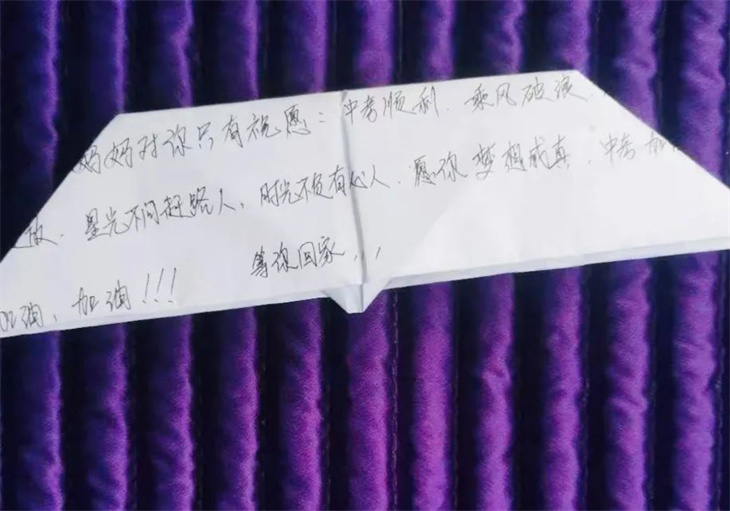 妈妈对你只有祝愿：中考顺利、乘风破浪
星光不问赶路人，时光不负有心人、愿你梦想成真、中考加
加油、加油！！！ 等你回家，，，